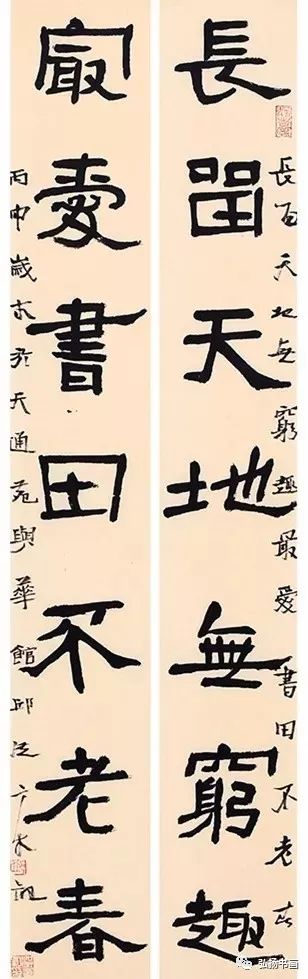 長留天地無窮趣
長留天地無窮趣最愛書田不老春
最愛書田不老春
丙申歲末於天通苑與華館邱
弘扬书画